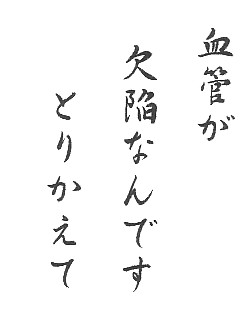 血管が
欠陥なんです
とりかえて